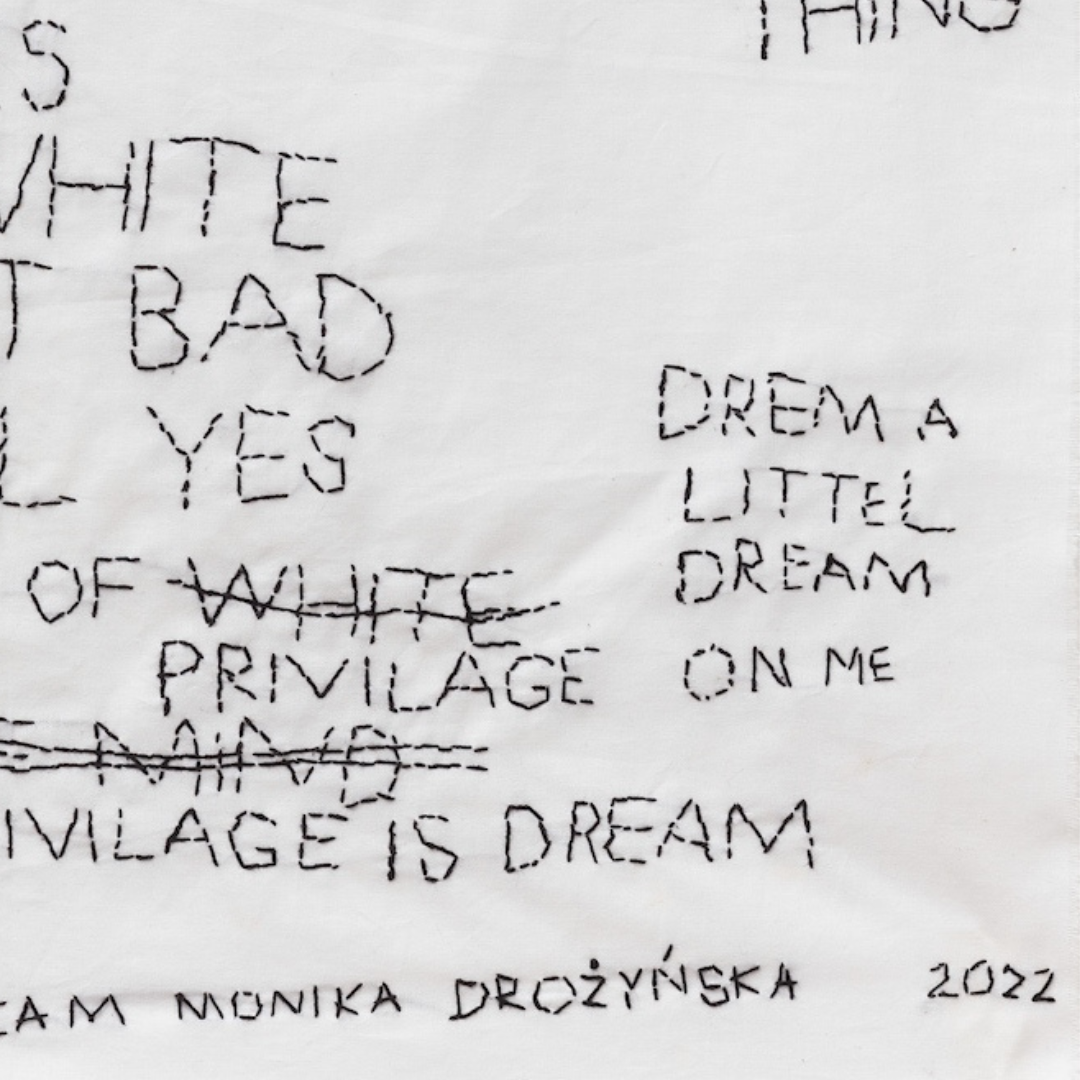 THING
S
WHITE
T BAD
L YES
DREM A
LITTEL
DREAM
ON ME
OF WHITE
PRIVILAGE
E MIND
IVILAGE IS DREAM
EAM MONIKA DROŻYŃSKA 2022